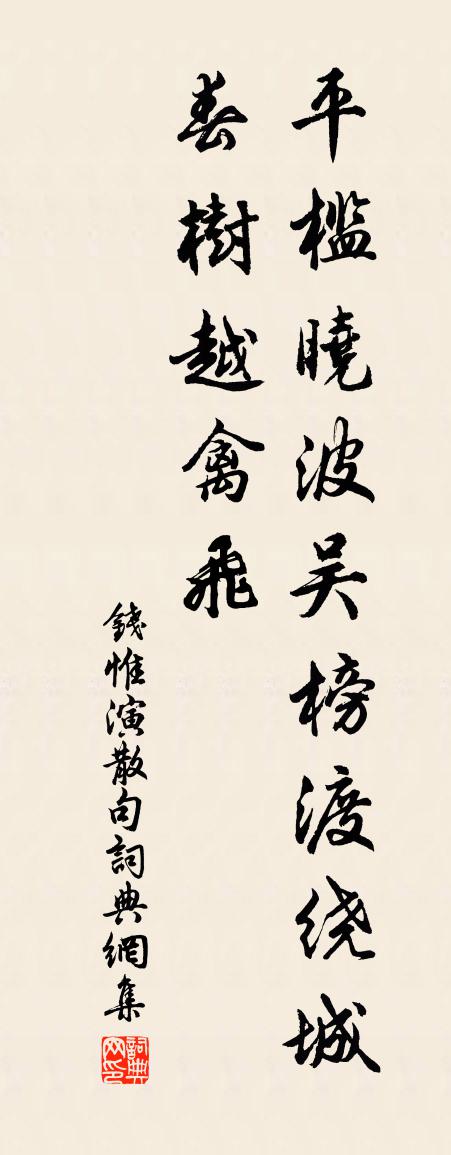 平檻曉波吴榜渡绕城
春樹越禽飛
錢惟演散句詞典網集
詞典网印